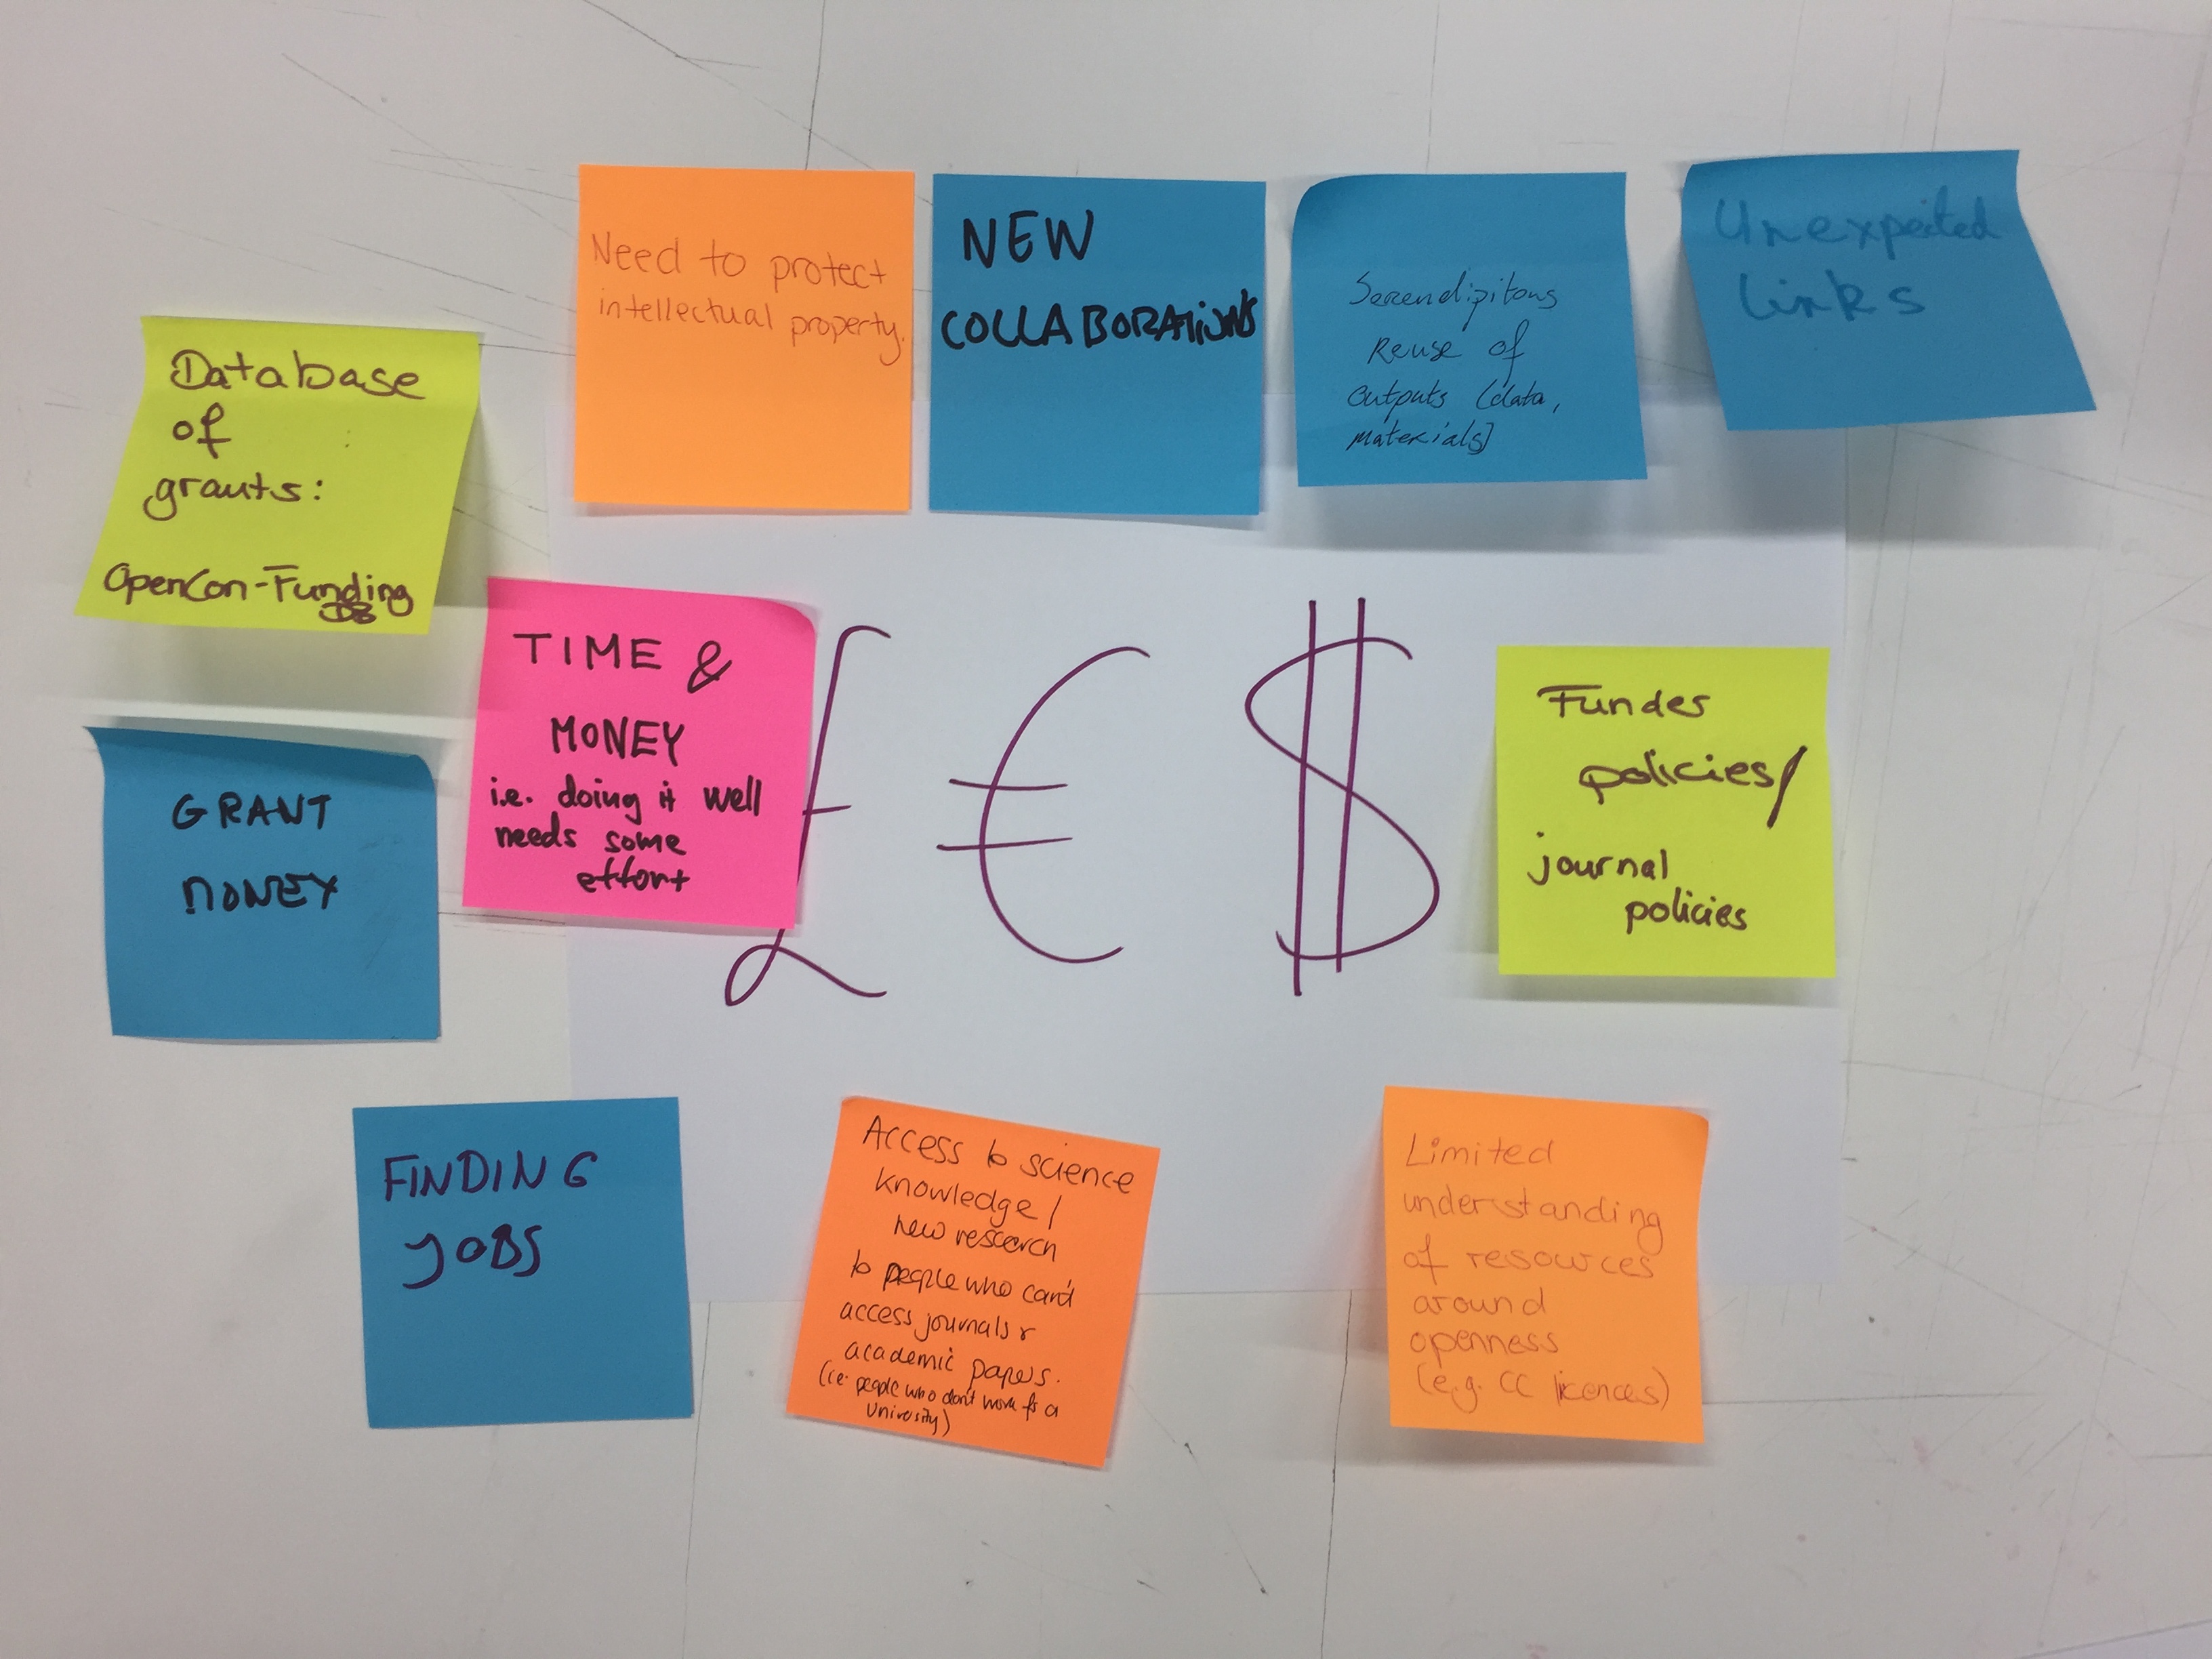 Need to protect
intellectual property.
NEW
COLLABORATIONS
Serendipitous
Reuse of
outputs (data,
materials]
Unexpected
links
Database
of
grants:
OpenCon-Funding
DB
TIME &
MONEY
i.e. doing it well
needs some
effort
£ € $
Funder
policies/
journal
policies
GRANT
MONEY
FINDING
JOBS
Access to science
knowledge/
new research
to people who can't
access journals or
academic papers.
(i.e. people who don't work for a
University)
Limited
understanding
of resources
around
openness
(e.g. CC licences)